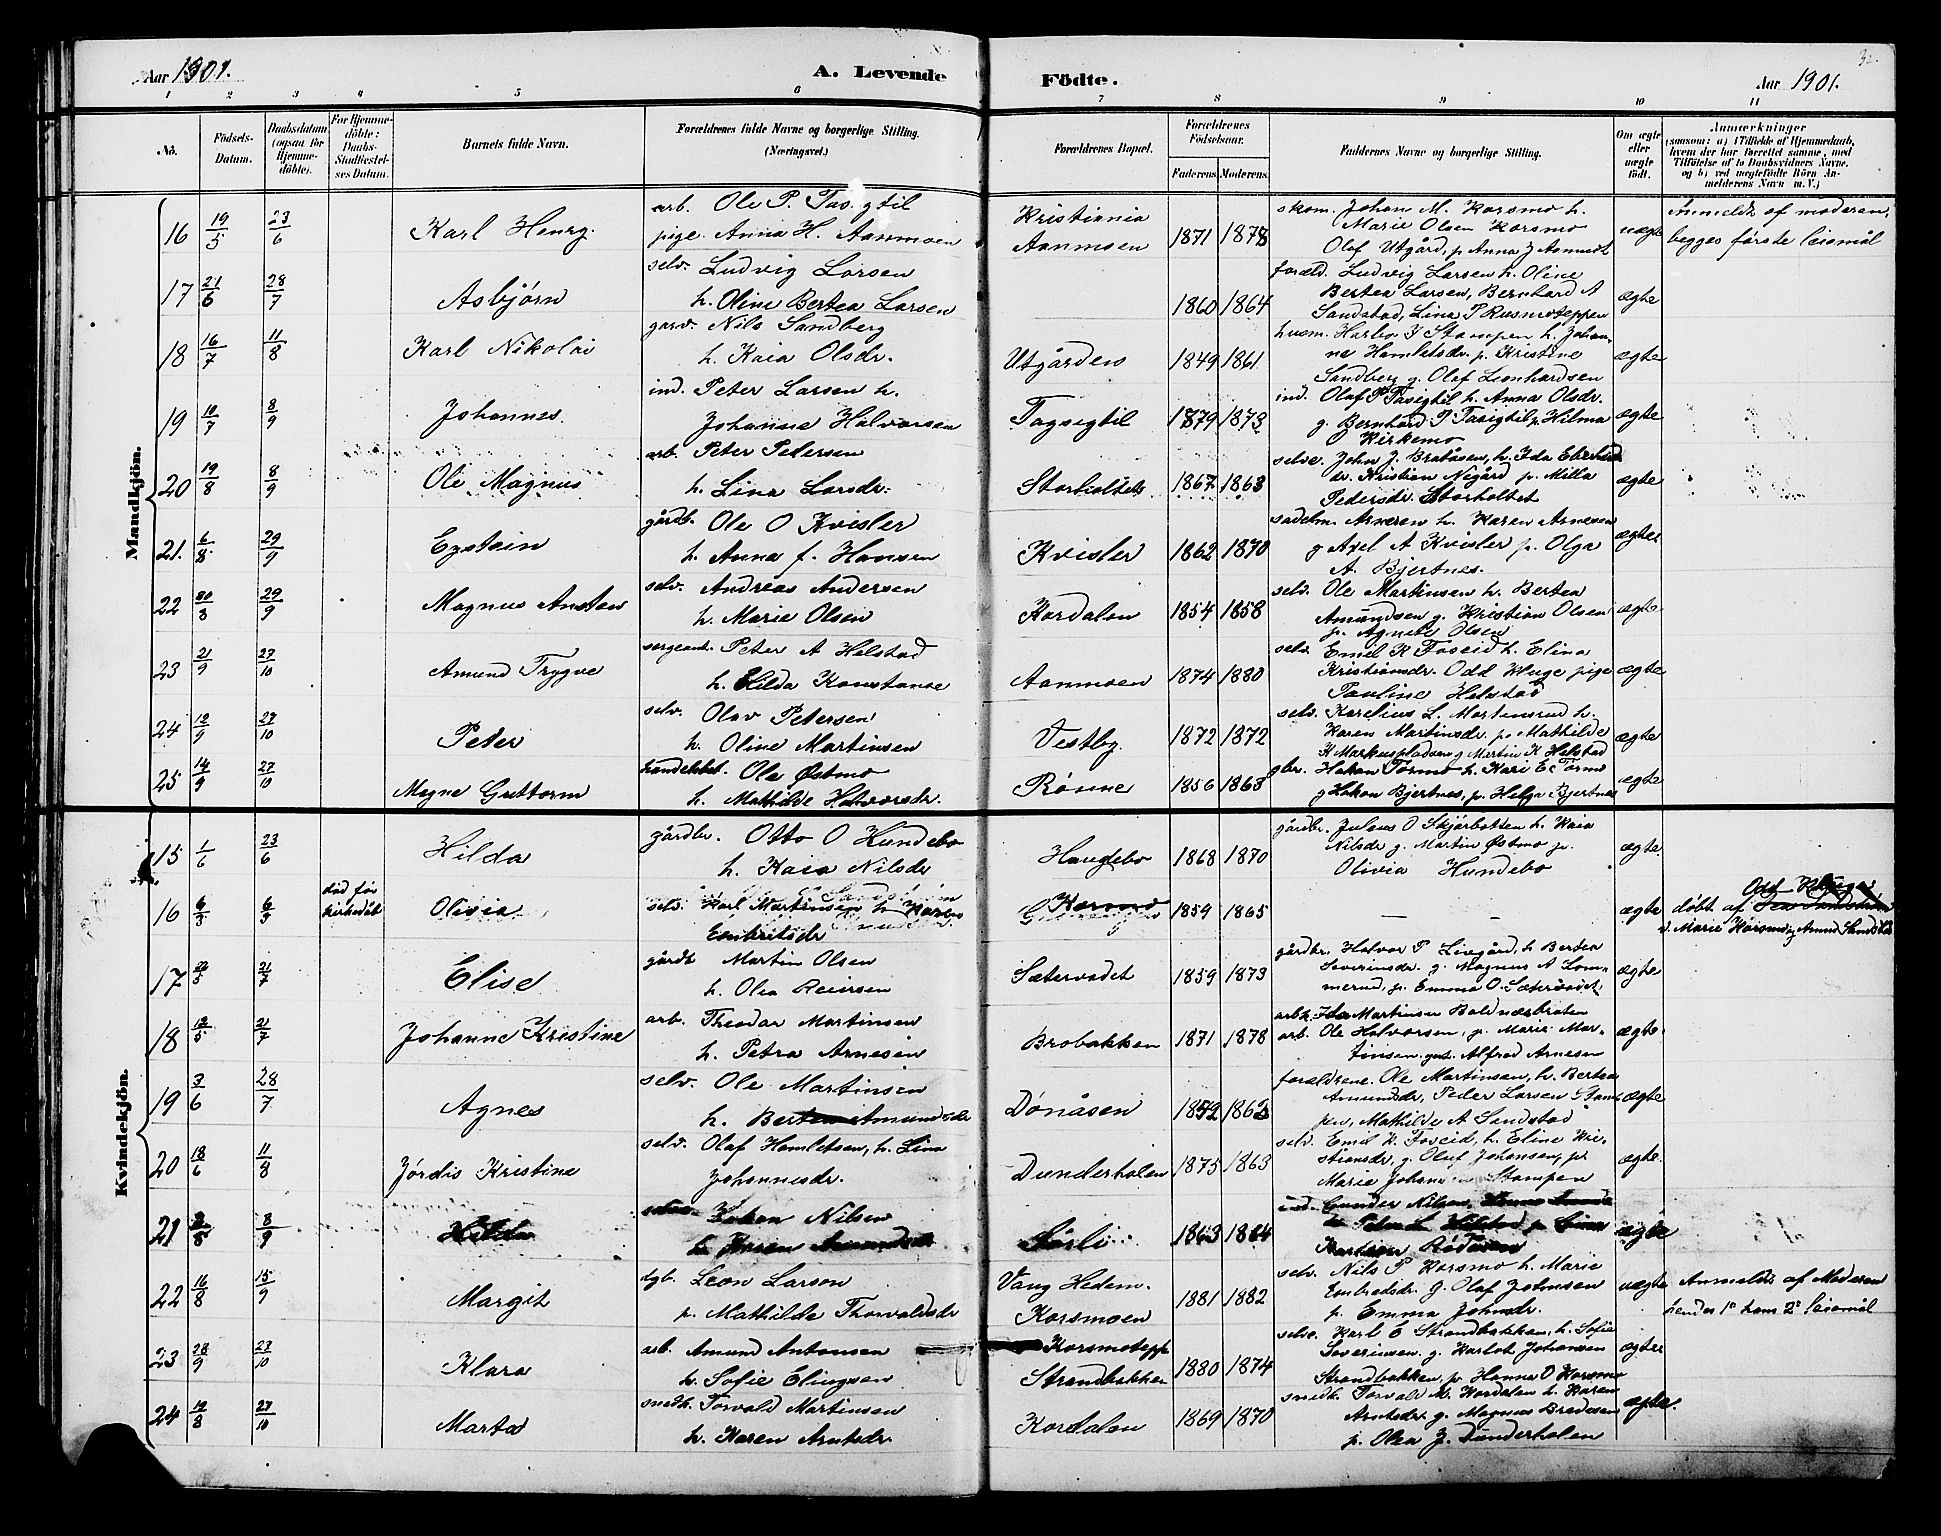 Aar 1901.
A. Levende
Födte.
Aar 1901.
32.
1 2 3 4 5 6 7 8 9 10 11
No.
Födsels-
Datum.
Daabsdatum
(ogsaa for
Hjemme-
döbte).
For Hjemme-
döbte:
Daabs-
Stadfæstel-
ses Datum.
Barnets fulde Navn.
Forældrenes fulde Navne og borgerlige Stilling.
(Næringsvei.)
Forældrenes Bopæl.
Forældrenes
Födselsaar.
Faderens. Moderens.
Faddernes Navne og borgerlige Stilling.
Om ægte
eller
uægte
födt.
Anmærkninger
(saasom: a) i Tilfælde af Hjemmedaab,
hvem der har forrettet samme, med
Tilföielse af to Daabsvidners Navne,
og b) ved uægtefödte Börn An-
melderens Navn m. V.)
Mandkjön.
16 19/5 23/6 Karl Henry. arb. Ole P. Tasigtil
pige. Anna H. Aanmoen
Kristiania
Aanmoen 1871 1878
skom. Johan M. Korsmo h.
Marie Olsen Korsmo
Olaf Utgård, p. Anna J Aanmoen
uægte
Anmeldt af moderen,
begges første leiemål
17 21/6 28/7 Asbjørn selv. Ludvig Larsen
h. Oline Bertea Larsen
1860 1864
foræld. Ludvig Larsen h. Oline
Bertea Larsen, Bernhard A
Sandstad, Lina P Rusmoteppen
ægte
18 16/7 11/8 Karl Nikolai garv. Nils Sandberg
h. Kaia Olsdr.
Utgården 1849 1861
husm. Harbo J Stampen h. Johan-
ne Hamletsdr. p. Kristine
Sandberg g. Olaf Lionhardsen
ægte
19 10/7 8/9 Johannes. ind. Peter Larsen h.
Johanne Halvorsen
Tagsigtil 1879 1873
ind. Olaf P Tasigtil h. Anna Olsdr.
g. Bernhard P Tasigtil p. Hilma
Kirkemo
ægte
20 19/8 8/9 Ole Magnus arb. Peter Petersen
h. Lina Larsdr.
Storholtet 1867 1863
selve. John J. Bråtåsen, h. Ida
dr. Kristian Negård p. Milla
Pedersdr. Storholtet
ægte
21. 6/8 29/9 Eystein gårdb. Ole O Kvisler
h. Anna f. Hansen
Kvisler 1862 1870
sadelm. Arnesen h. Karen Arnesen
g Axel A Kvisler p. Olga
A. Bjertnes.
ægte
22 30/8 29/9 Magnus Anton selv. Andreas Andersen
h. Marie Olsen
Kordalen 1854 1858
selv. Ole Martinsen h. Bertea
Amundsen g. Kristian Olsen
p. Agnete Olsen
ægte
23 21/9 27/10 Amund Trygve sergeant. Peter A Helstad
h. Hilda Konstanse
Aanmoen 1874 1880
selv. Emil K Fosseid h. Elina
Kristiansdr. Odd Kluge pige
Pauline Helstad
ægte
24 12/9 27/10 Peter selv. Olav Petersen
h. Oline Martinsen
Vestby. 1872 1872
selv. Karelius L. Martinsrud h.
Karen Martinsdr. p. Mathilde
K Markuspladsen g Martin K Helstad
ægte
25 14/9 27/10 Magne Guttorm handelsbet. Ole Østmo
h. Mathilde Halvorsdr.
Rönne 1856 1863
gbr. Hakon Tormo h. Kari E Tormo
g Håkon Bjertnes, p. Helga Bjertnes
ægte
Kvindekjön.
15 1/6 23/6 Hilda gårdbr. Otto O Hundebo
h. Kaia Nilsdr
Haugebo 1868 1870
gårdbr. Julius O Skjærbatten h. Kaia
Nilsdr g. Martin Østmo p.
Olivia Hundebo
ægte.
16 6/3 6/3 død før
kirkedåb Olivia selv. Karl Martinsen h Karen
Embretsdr
Korsmo 1859 1865
— —
ægte
Odd Kluge
døbt af
v. Marie Korsmo, Amund Sandstad
17 22/5 21/7 Elise gårdb Martin Olsen
h. Olea Reiersen
Sætervadet 1859 1873
gårdbr. Halvor P. Liegård, h Bertea
Severinsdr. g. Magnus A Lom-
merud, p. Emma O. Sætervadet.
ægte
18 12/5 21/7 Johanne Kristine arb. Theodor Martinsen
h. Petra Arnesen
Brobakken 1871 1878
arbk. Ida Martinsen Boldnæsbråten
arb. Ole Halvorsen, p. Marie Mar-
tinsen. gut. Alfred Arnesen
ægte
19 3/6 28/7 Agnes selv. Ole Martinsen
h. Bertea Amundsdr
Dønåsen 1852 1862
forældrene. Ole Martinsen, h. Bertea
Amundsdr, Peder Larsen Stam-
pen, Mathilde A Sandstad
ægte
20 18/6 11/8 Jørdis Kristine selv. Olaf Hamletsen, h. Lina
Johannesdr.
Dunderholen 1875 1863
selv. Emil K. Fosseid, h. Eline Kri-
stiansdr, g. Oluf Johansen, p.
Marie Johansen Stampen
ægte.
21 2/8 8/9 Hilda Håken Nilsen
h Karen Amundsdr
Sørli 1863 1864
ind. Gunder Nilsen,
Peter L Helstad p.
ægte
22 16/8 15/9 Margit dgb. Leon Larson
p. Mathilde Thorvaldsdr
Vang Hedem.
Korsmoen 1881 1882
selv. Nils P Korsmo h. Marie
Embretsdr. g. Olaf Johnsen
p. Emma Johnsdr.
uægte
Anmeldt af Moderen
hendes 1ste hans 2det leiemål
23 28/9 27/10 Klara arb. Amund Antonsen
h. Sofie Elingsen
Korsmoteppe
Strandbakken 1880 1874
selve. Karl E Strandbakken, h. Sofie
Severinsen. g. Karlot Johansen
Strandbakken, p. Hanna O Korsmo
ægte
24 12/8 27/10 Marta snedk. Torvald Martinsen
h. Karen Arntsdr.
Kordalen 1869 1870
snedk. Torvald M. Kordalen h. Karen
Arntsdr. g. Magnus Bredesen
p. Olea J. Dunderholen
ægte.